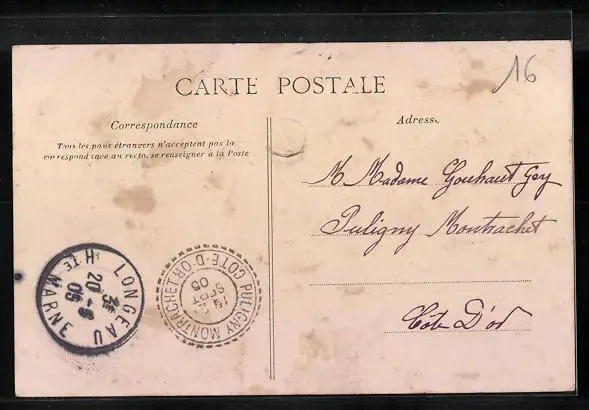 CARTE POSTALE
16
Correspondance
Tous les pays étrangers n'acceptent pas la
correspondance au recto, se renseigner à la Poste
Adresse
M Madame Gouhaut Gey
Puligny Montrachet
Côte D'or
LONGEAU
Hte MARNE
20 -9
05
PULIGNY MONTRACHET
COTE-D'OR
SEPT
05